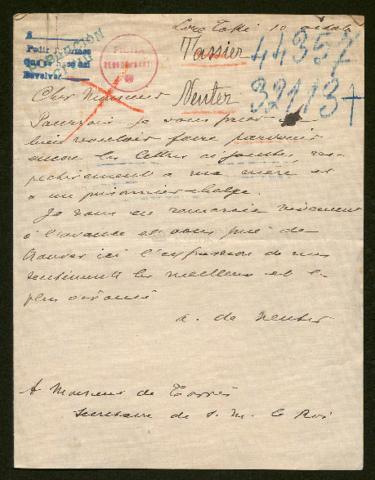 10 octobre
Tassier 44357
Neuter 32113 +
Cher Monsieur
Pourrais-je vous prier de
bien vouloir faire parvenir
encore les lettres ci-jointes, res-
pectivement à ma mère et
à un prisonnier belge.
Je vous en remercie vivement
à l'avance et vous prie de
trouver ici l'expression de mes
sentiments les meilleurs et les
plus dévoués
a. de Neuter
A Monsieur de
Secrétaire de S. M. le Roi